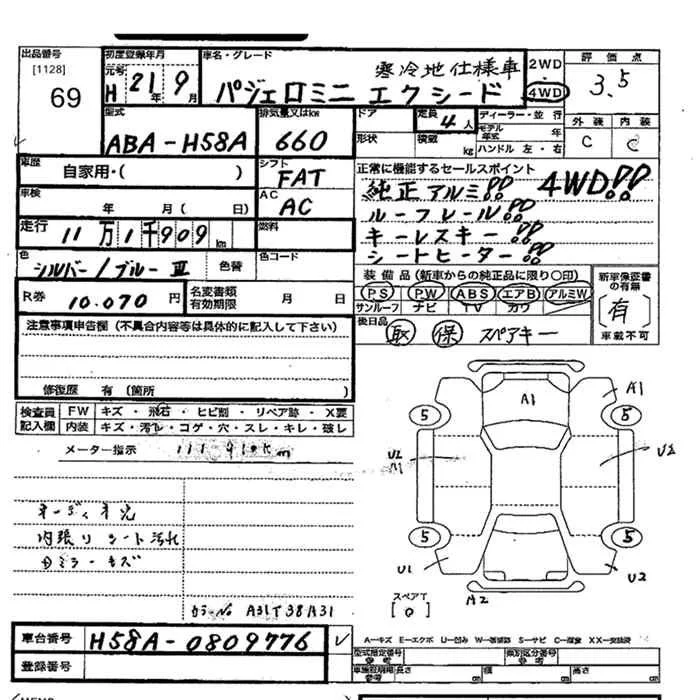 出品番号 初度登録年月 車名・グレード 2WD 評価点
[1128] 元号 寒冷地仕様車
69 H 21年 9月 パジェロミニ エクシード 4WD 3.5
型式 排気量又はkw ドア 定員 4人 ディーラー・並行 外装 内装
ABA-H58A 660 形状 積載 kg モデル年式 年 C C
ハンドル 左・右
車歴 自家用・( ) シフト FAT 正常に機能するセールスポイント
車検 年 月( 日) AC AC 純正アルミ!! 4WD!!
ルーフレール!!
走行 11万1千909km 燃料 キーレスキー!!
シートヒーター!!
色 シルバー/ブルーⅢ 色替 色コード 装備品(新車からの純正品に限り○印) 新車保証書の有無
R券 10.070円 名変書類有効期限 月 日 PS PW ABS エアB アルミW [有]
サンルーフ ナビ TV カワ
後日品 取 保 スペアキー 車載不可
注意事項申告欄(不具合内容等は具体的に記入して下さい)
修復歴 有(箇所 )
検査員 FW キズ・飛石・ヒビ割・リペア跡・X要
記入欄 内装 キズ・汚レ・コゲ・穴・スレ・キレ・破レ
メーター指示 111909km
A1 A1
5 5
U2 U2
オーディオ欠
内張りシート汚れ
5 5
U1 U2
A2
スペアT
[0]
カラーNo A31T38A31
車台番号 H58A-0809776
登録番号
A-キズ E-エクボ U-凹み S-サビ C-腐食 XX-交換済
型式指定番号 参考 類別区分番号 参考
長さ cm 幅 cm 高さ cm